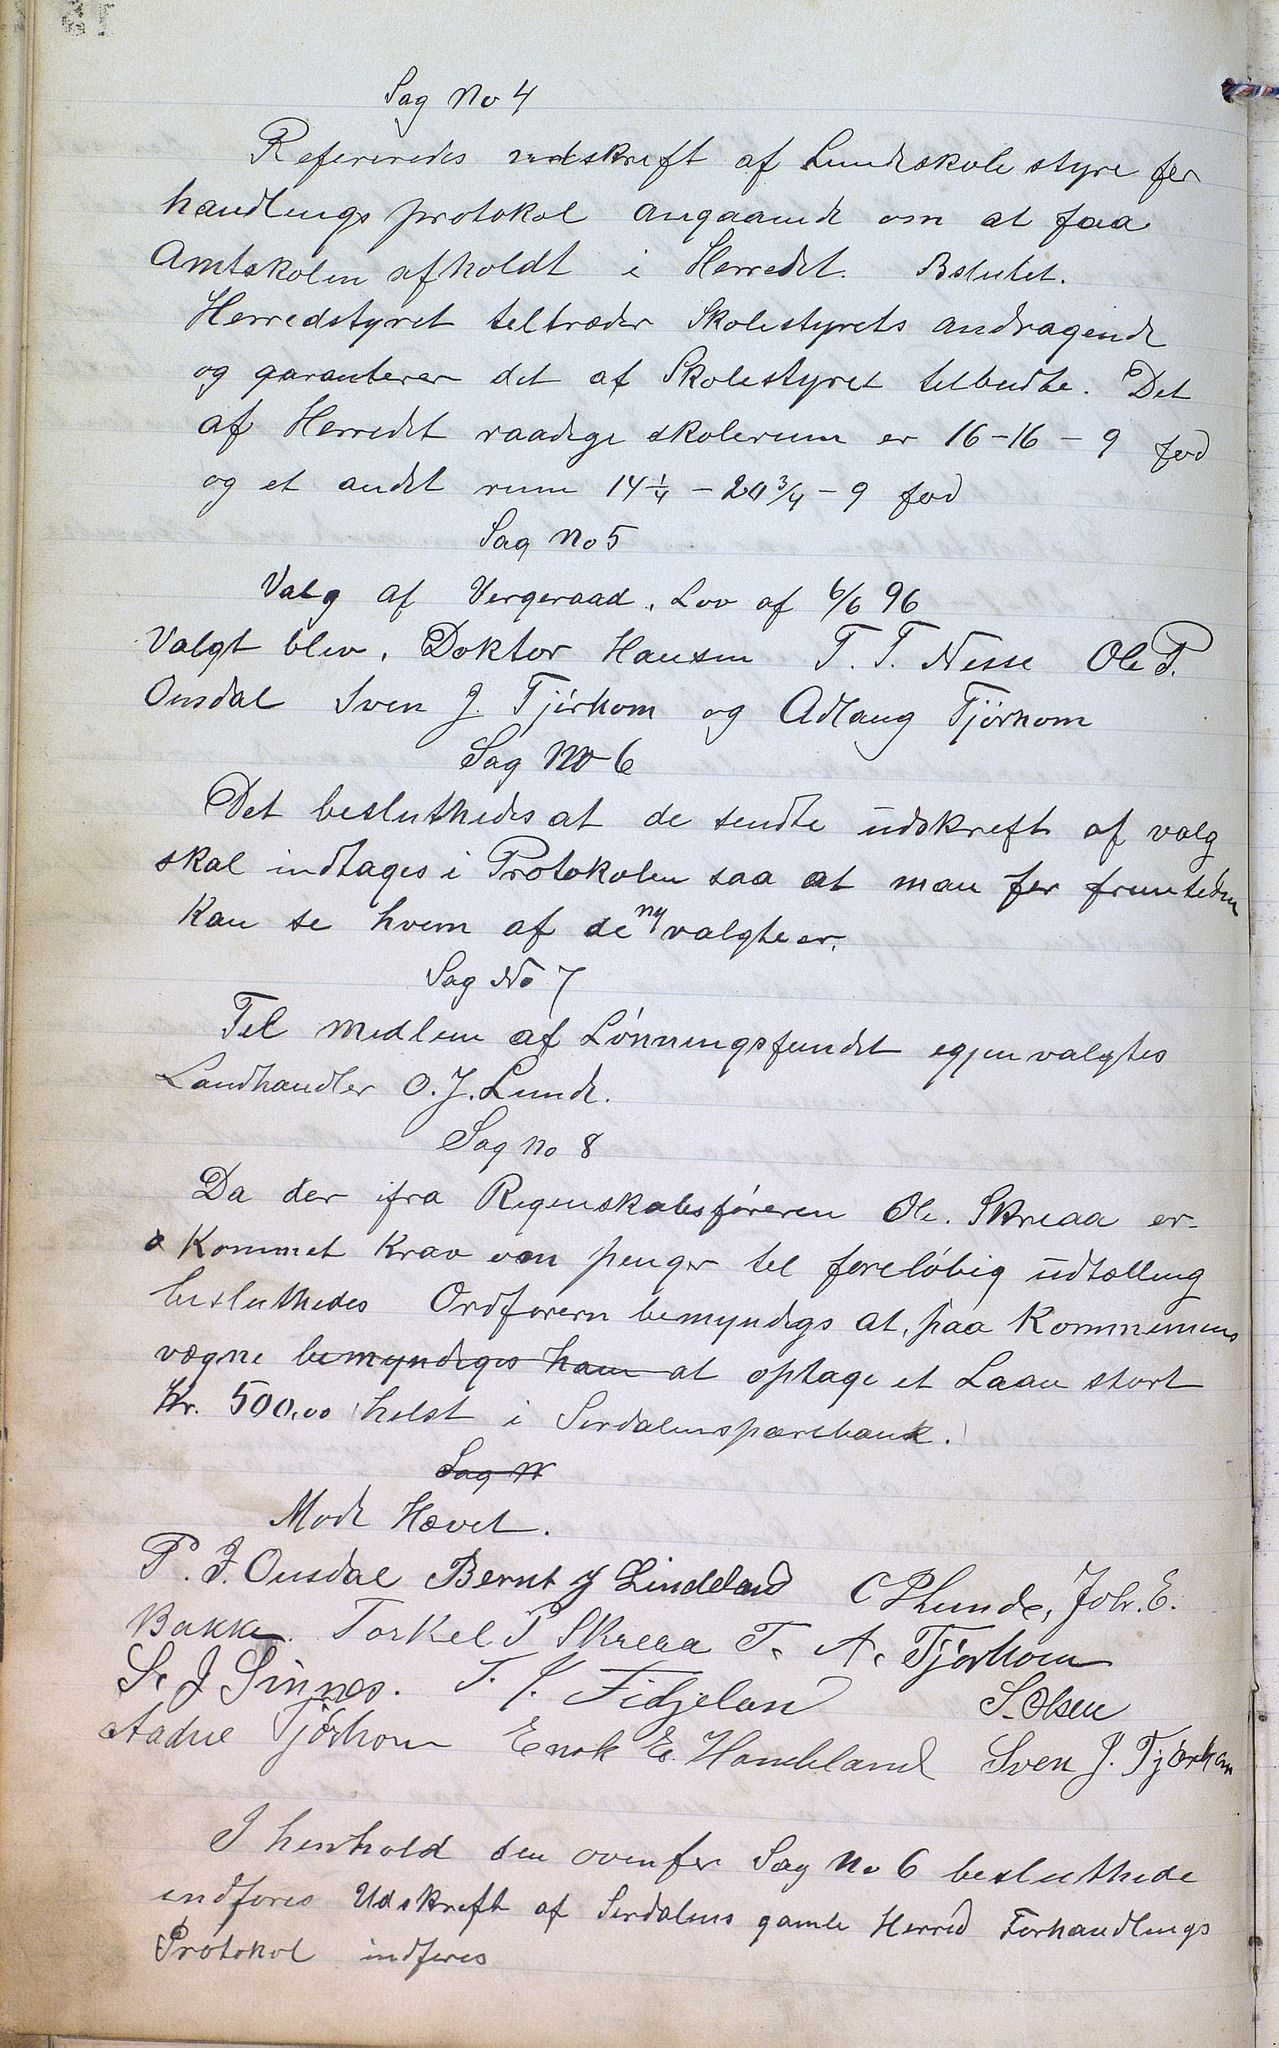 Sag No 4
Refereredes udskrift af Lundeskolestyre for
handlingsprotokol angaaende om at faa
Amtskolen afholdt i Herredet. Bslutet.
Herredstyret tiltræder Skolestyrets andragende
og garanterer det af Skolestyret tilbudte. Det
af Herredet raadige skolerum er 16-16-9 fod
og et andet rum 14 1/4 - 20 3/4 - 9 fod
Sag No 5
Valg af Vergeraad. Lov af 6/6 96
Valgt blev. Doktor Hansen T. T. Nesse Ole P.
Ousdal Sven J. Tjörhom og Adlaug Tjörhom
Sag No 6
Det besluthedes at de sendte udskrift af valg
skal indtages i Protokolen saa at man for fremtiden
Kan se hvem af de ny valgte er.
Sag No 7
Til medlem af Lönningsfundet egjenvalgtes
Landhandler O. J. Lunde.
Sag no 8
Da der ifra Regenskabsföreren Ole. Skreaa er
Kommet Krav om penger til foreløbig udtælling
besluthedes Ordforern bemyndigs at, paa Kommunens
vægne bemyndiges ham at optage et Laan stort
Kr. 500.00 helst i Serdalens sparebank.
Sag N
Mode Hævet.
P. J. Ousdal Bernt J Lindeland C P Lunde, Joh. E.
Bakke. Torkel P Skreaa T. A. Tjørhom
S. J Sinnes. T. J. Fidjeland S. Olsen
Aadne Tjörhom Enok E. Haneland Sven J. Tjørhom
I henhold den ovenfor Sag No 6 besluthede
indfores Udskreft af Serdalens gamle Herred Forhandlings
Protokol indferes